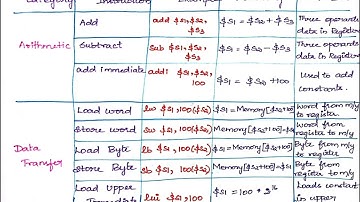 Category Instruction Example
Add add $s1,$s2, $s3 $s1 = $s2 + $s3 Three operands data in Register
Arithmetic Subtract Sub $s1,$s2, $s3 $s1 = $s2 - $s3 Three operands data in Register
add immediate addi $s1,$s2, 100 $s1 = $s2 +100 Used to add constants.
Data Transfer
Load word lw $s1,100($s2) $s1 = Memory[$s2+100] word from m/y to register.
Store word sw $s1,100($s2) Memory[$s2+100]=$s1 word from register to m/y
Load Byte lb $s1,100($s2) $s1=Memory[$s2+100] Byte from m/y to register
Store Byte sb $s1,100($s2) Memory[$s2+100]=$s1 Byte from register to m/y
Load Upper lui $s1,100 $s1 = 100 * 2^16 Loads constant in upper